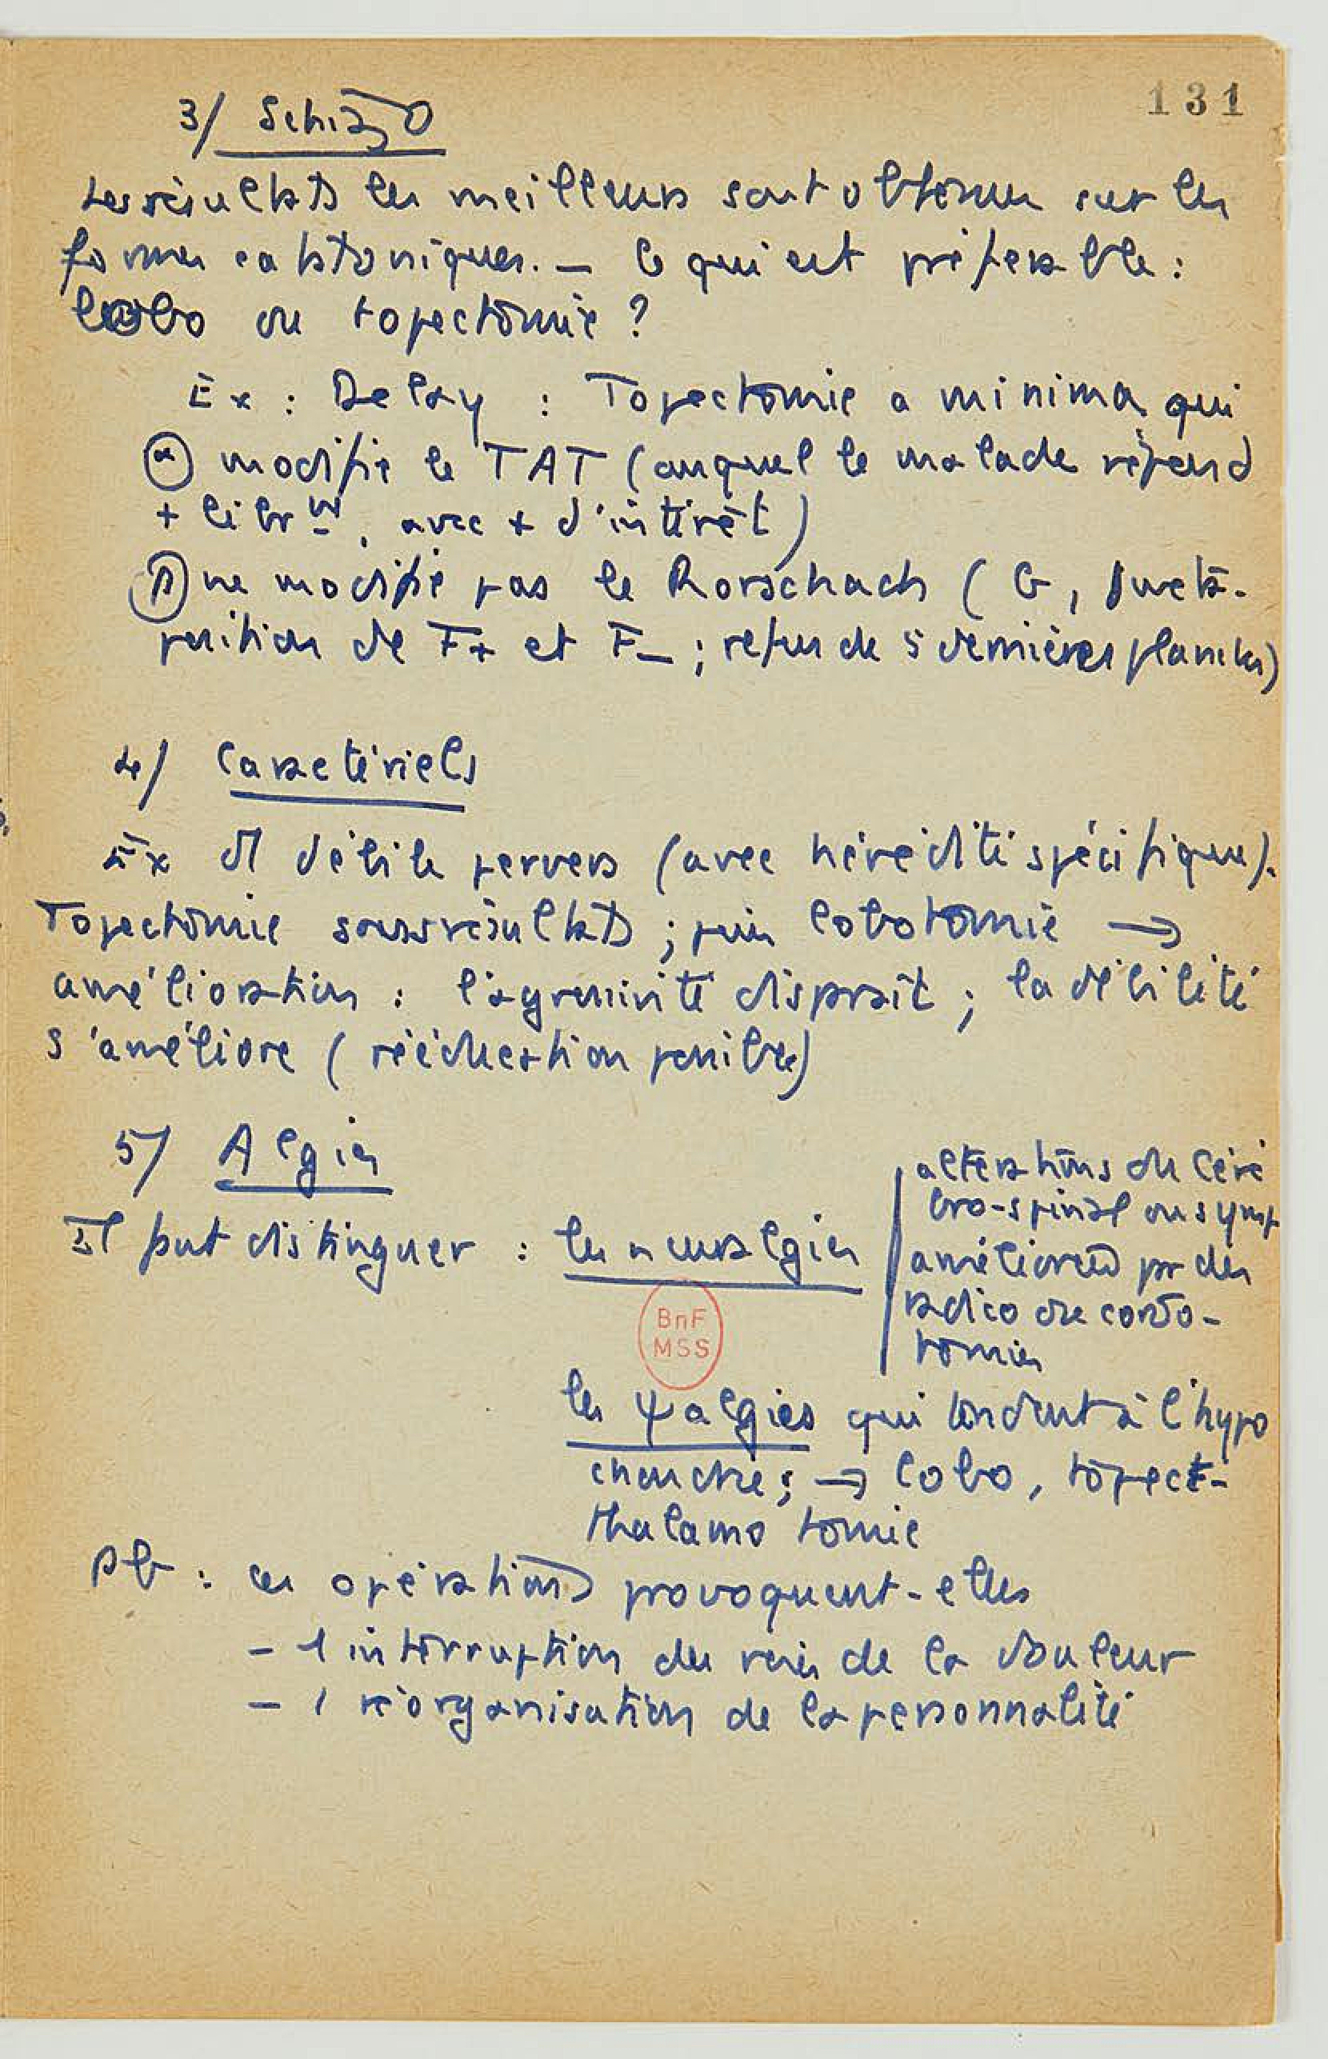 131
3/ Schizo
Les résultats les meilleurs sont obtenus sur les
formes catatoniques. — Ce qui est préférable :
lobo ou topectomie ?
Ex : Delay : Topectomie a minima qui
α modifie le TAT (auquel le malade répond
+ librᵗ, avec + d'intérêt)
β ne modifie pas le Rorschach ( G, juxta-
position de F+ et F– ; refus de 5 dernières planches)
4/ Caractériels
Ex débile pervers (avec hérédité spécifique).
Topectomie sans résultats ; puis lobotomie →
amélioration : l'agressivité disparaît ; la débilité
s'améliore ( rééducation possible)
5/ Algies
Il faut distinguer : les neuralgies
altérations du céré
bro-spinal ou symp
améliorées par des
radico ou cordo-
tomies
BnF
MSS
les ψalgies qui tendent à l'hypo
chondrie ; → lobo, topect-
thalamo tomie
Pb : ces opérations provoquent-elles
– 1 interruption des voies de la douleur
– 1 réorganisation de la personnalité